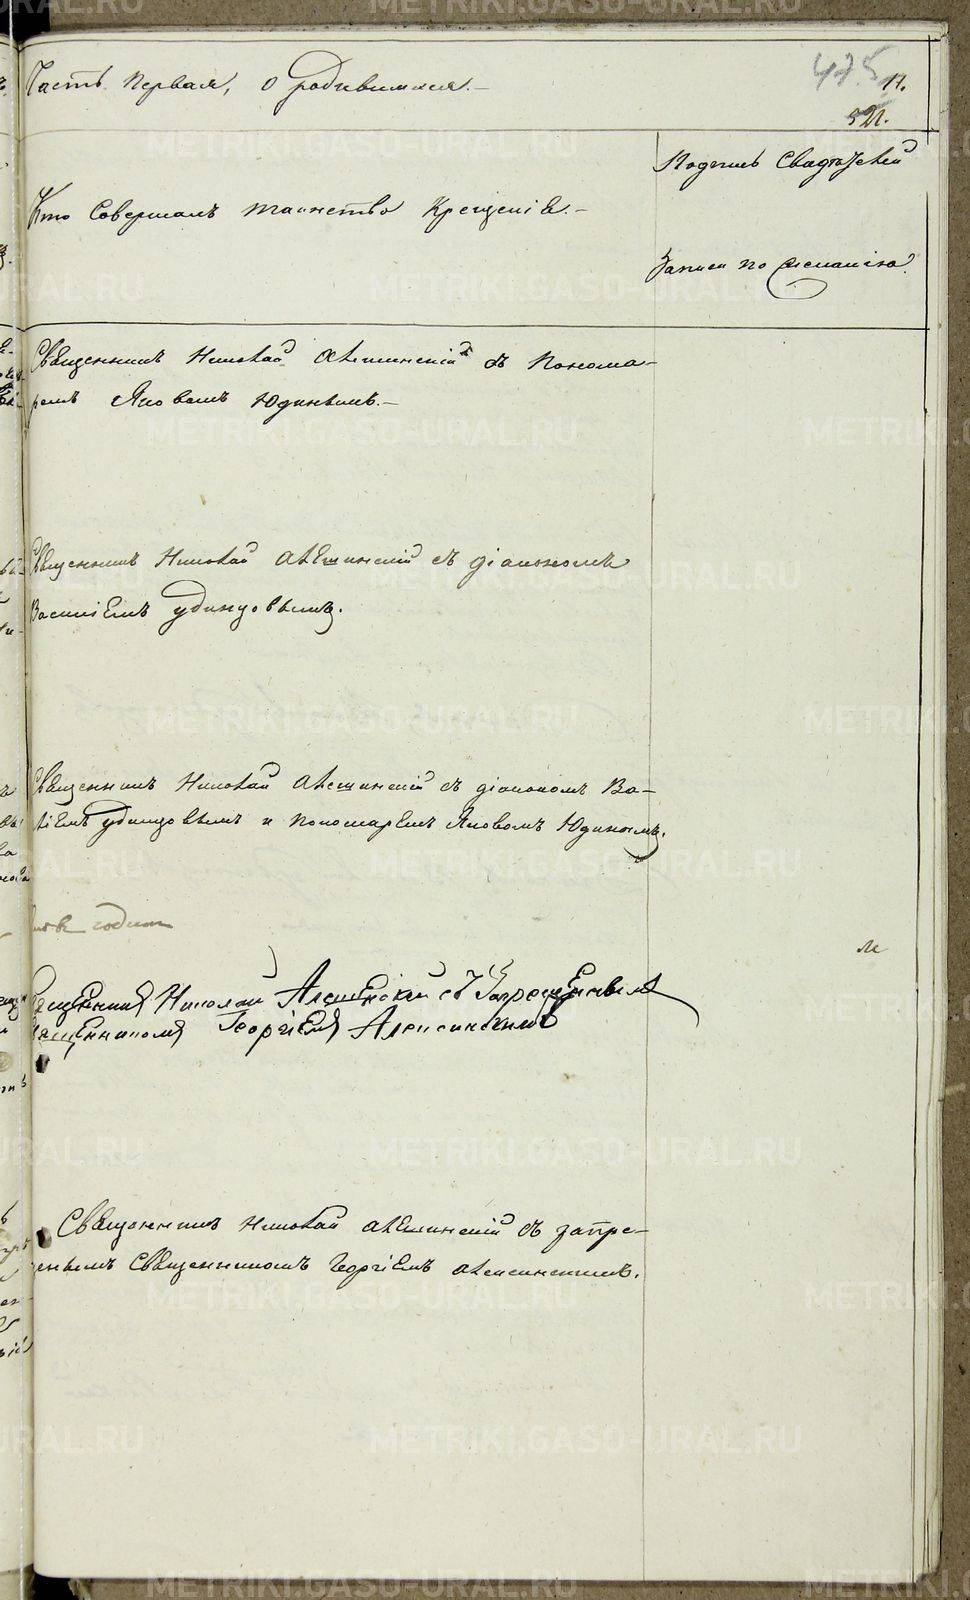 Часть первая, о родившихся.—
475
11.
521.
Кто совершалъ таинство крещенія.—
Подпись свидѣтелей
записи по желанію.
Священникъ Николай Алешинскій съ Понома-
ремъ Яковомъ Юдинымъ.—
Священникъ Николай Алешинскій съ діакономъ
Василіемъ Удинцовымъ.
Священникъ Николай Алешинскій съ діакономъ Ва-
ліемъ Удинцовымъ и пономаремъ Яковомъ Юдинымъ.
годит
Священникъ Николай Алешинскій съ Запрещеннымъ
Священникомъ Георгіемъ Алексинскимъ
Священникъ Николай Алешинскій съ запре-
щеннымъ Священникомъ Георгіемъ Алексинскимъ.
METRIKI.GASO-URAL.RU